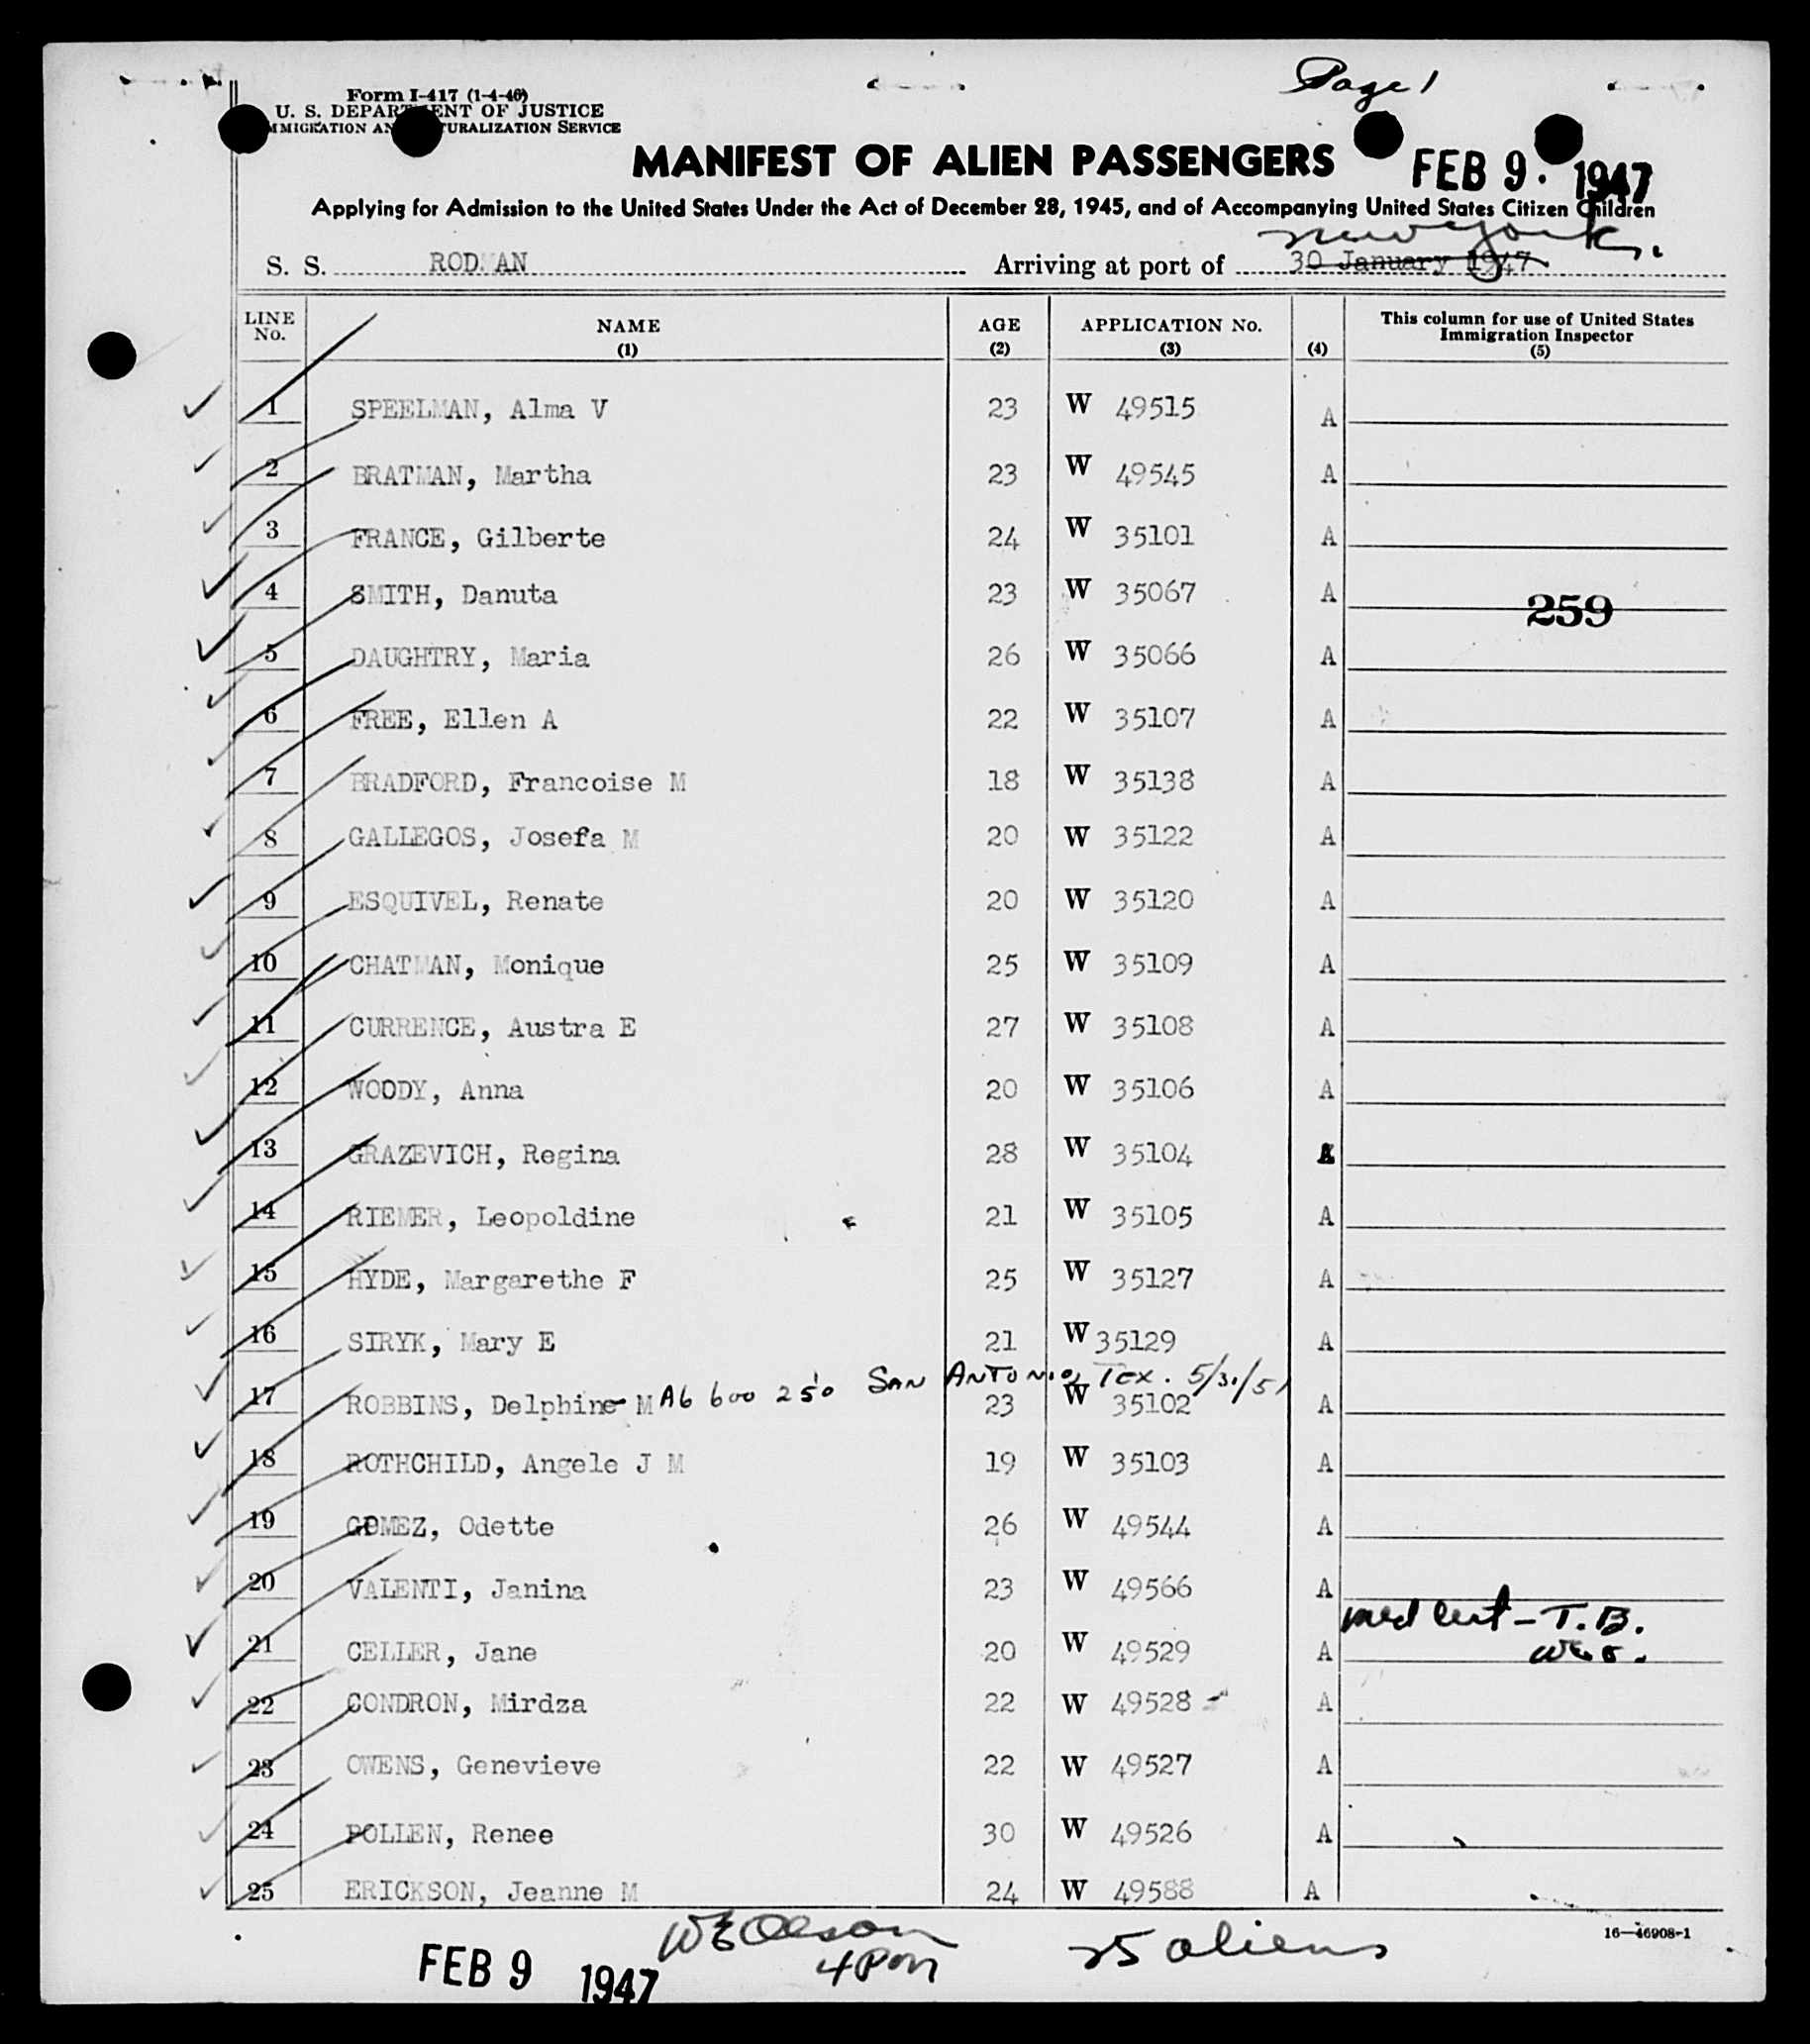 Page 1
Form I-417 (1-4-46)
U. S. DEPARTMENT OF JUSTICE
IMMIGRATION AND NATURALIZATION SERVICE
MANIFEST OF ALIEN PASSENGERS
FEB 9 1947
Applying for Admission to the United States Under the Act of December 28, 1945, and of Accompanying United States Citizen Children
New York
S. S. RODMAN Arriving at port of 30 January 1947
LINE No. NAME (1) AGE (2) APPLICATION No. (3) (4) This column for use of United States Immigration Inspector (5)
1 SPEELMAN, Alma V 23 W 49515 A
2 BRATMAN, Martha 23 W 49545 A
3 FRANCE, Gilberte 24 W 35101 A
4 SMITH, Danuta 23 W 35067 A 259
5 DAUGHTRY, Maria 26 W 35066 A
6 FREE, Ellen A 22 W 35107 A
7 BRADFORD, Francoise M 18 W 35138 A
8 GALLEGOS, Josefa M 20 W 35122 A
9 ESQUIVEL, Renate 20 W 35120 A
10 CHATMAN, Monique 25 W 35109 A
11 CURRENCE, Austra E 27 W 35108 A
12 WOODY, Anna 20 W 35106 A
13 GRAZEVICH, Regina 28 W 35104 A
14 RIEMER, Leopoldine 21 W 35105 A
15 HYDE, Margarethe F 25 W 35127 A
16 SIRYK, Mary E 21 W 35129 A
A6 600 250 SAN ANTONIO, TEX. 5/31/51
17 ROBBINS, Delphine M 23 W 35102 A
18 ROTHCHILD, Angele J M 19 W 35103 A
19 GOMEZ, Odette 26 W 49544 A
20 VALENTI, Janina 23 W 49566 A
med cert - T.B.
21 CELLER, Jane 20 W 49529 A
22 CONDRON, Mirdza 22 W 49528 A
23 OWENS, Genevieve 22 W 49527 A
24 POLLEN, Renee 30 W 49526 A
25 ERICKSON, Jeanne M 24 W 49588 A
16—46908-1
WE Olson 25 aliens
4 PM
FEB 9 1947